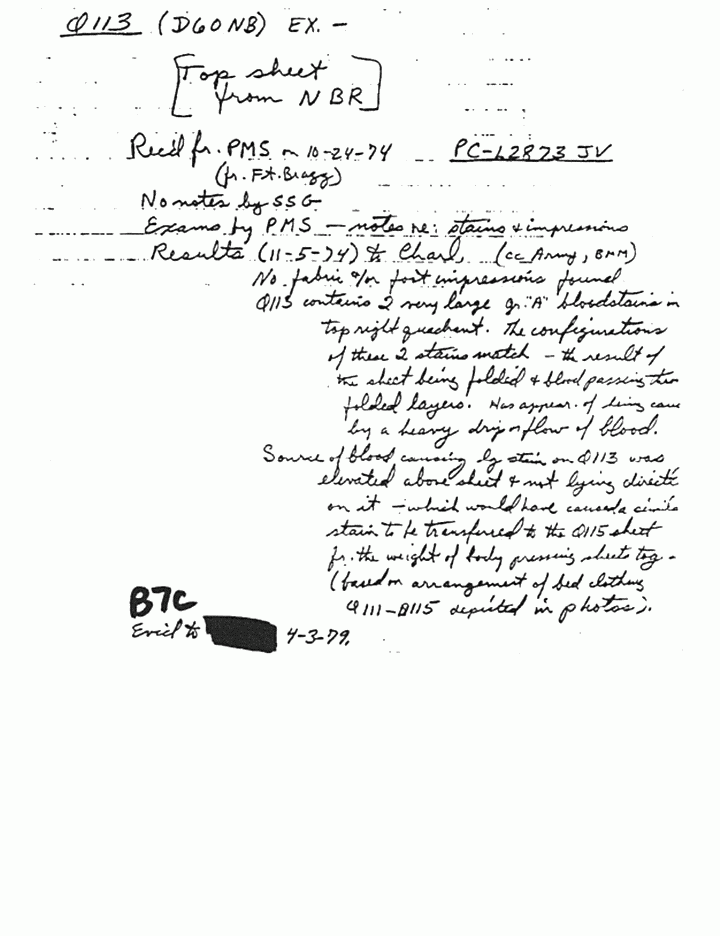 Q113 (D60NB) EX. -
[Top sheet
from NBR]
Rec'd fr. PMS on 10-24-74 PC-L2873 JV
(fr. Ft. Bragg)
No notes by SSG
Exams by PMS - notes re: stains & impressions
Results (11-5-74) to Charl. (cc Army, BMM)
No fabric &/or foot impressions found
Q113 contains 2 very large gr. "A" bloodstains in
top right quadrant. The configurations
of these 2 stains match - the result of
the sheet being folded & blood passing thru
folded layers. Has appear. of being caus
by a heavy drip or flow of blood.
Source of blood causing lg stain on Q113 was
elevated above sheet & not lying directl
on it - which would have caused a simila
stain to be transferred to the Q115 sheet
fr. the weight of body pressing sheets tog.
(based on arrangement of bed clothing
Q111-Q115 depicted in photos).
B7C
Evid to 4-3-79.